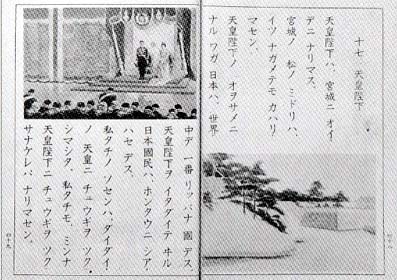 十七 天皇陛下
天皇陛下ハ、宮城ニ オイ
デニ ナリマス。
宮城ノ 松ノ ミドリハ、
イツ ナガメテモ カハリ
マセン。
天皇陛下ノ オヲサメニ
ナル ワガ 日本ハ、世界
中デ 一番 リッパナ 國 デス。
天皇陛下ヲ イタダイテ ヰル
日本國民ハ、ホンタウニ シアハ
ハセ デス。
私タチノ ソセンハ、ダイダイ
ノ 天皇ニ チュウギヲ ツク
シマシタ。私タチモ、ミンナ
天皇陛下ニ チュウギヲ ツク
サナケレバ ナリマセン。
四十九